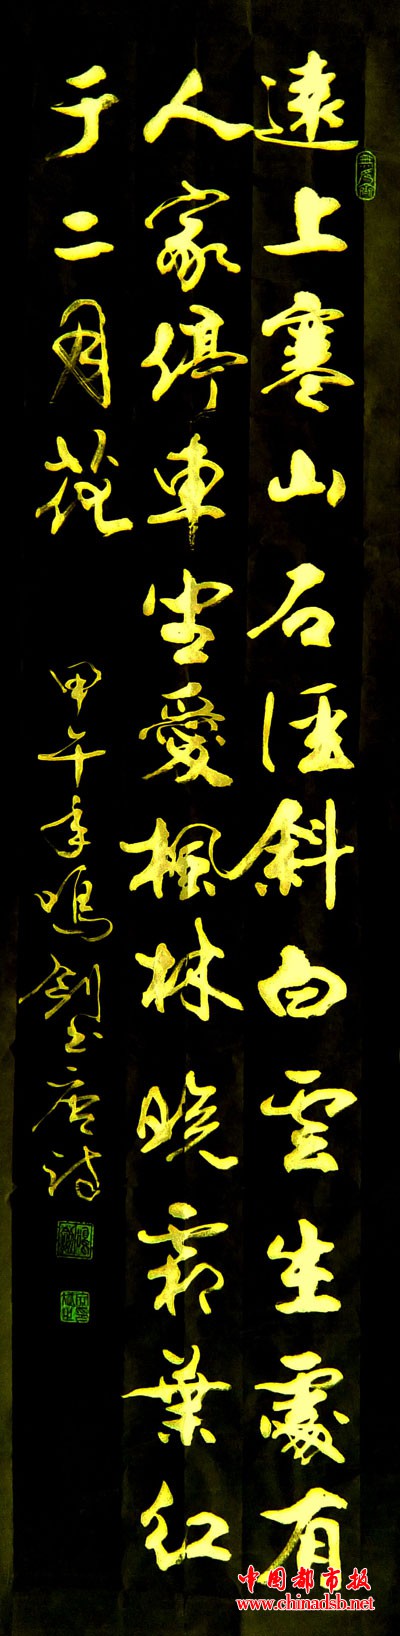 遠上寒山石徑斜白雲生處有
人家停車坐愛楓林晚霜葉紅
于二月花
甲午年鳴劍书唐詩
中国都市报
www.chinadsb.net